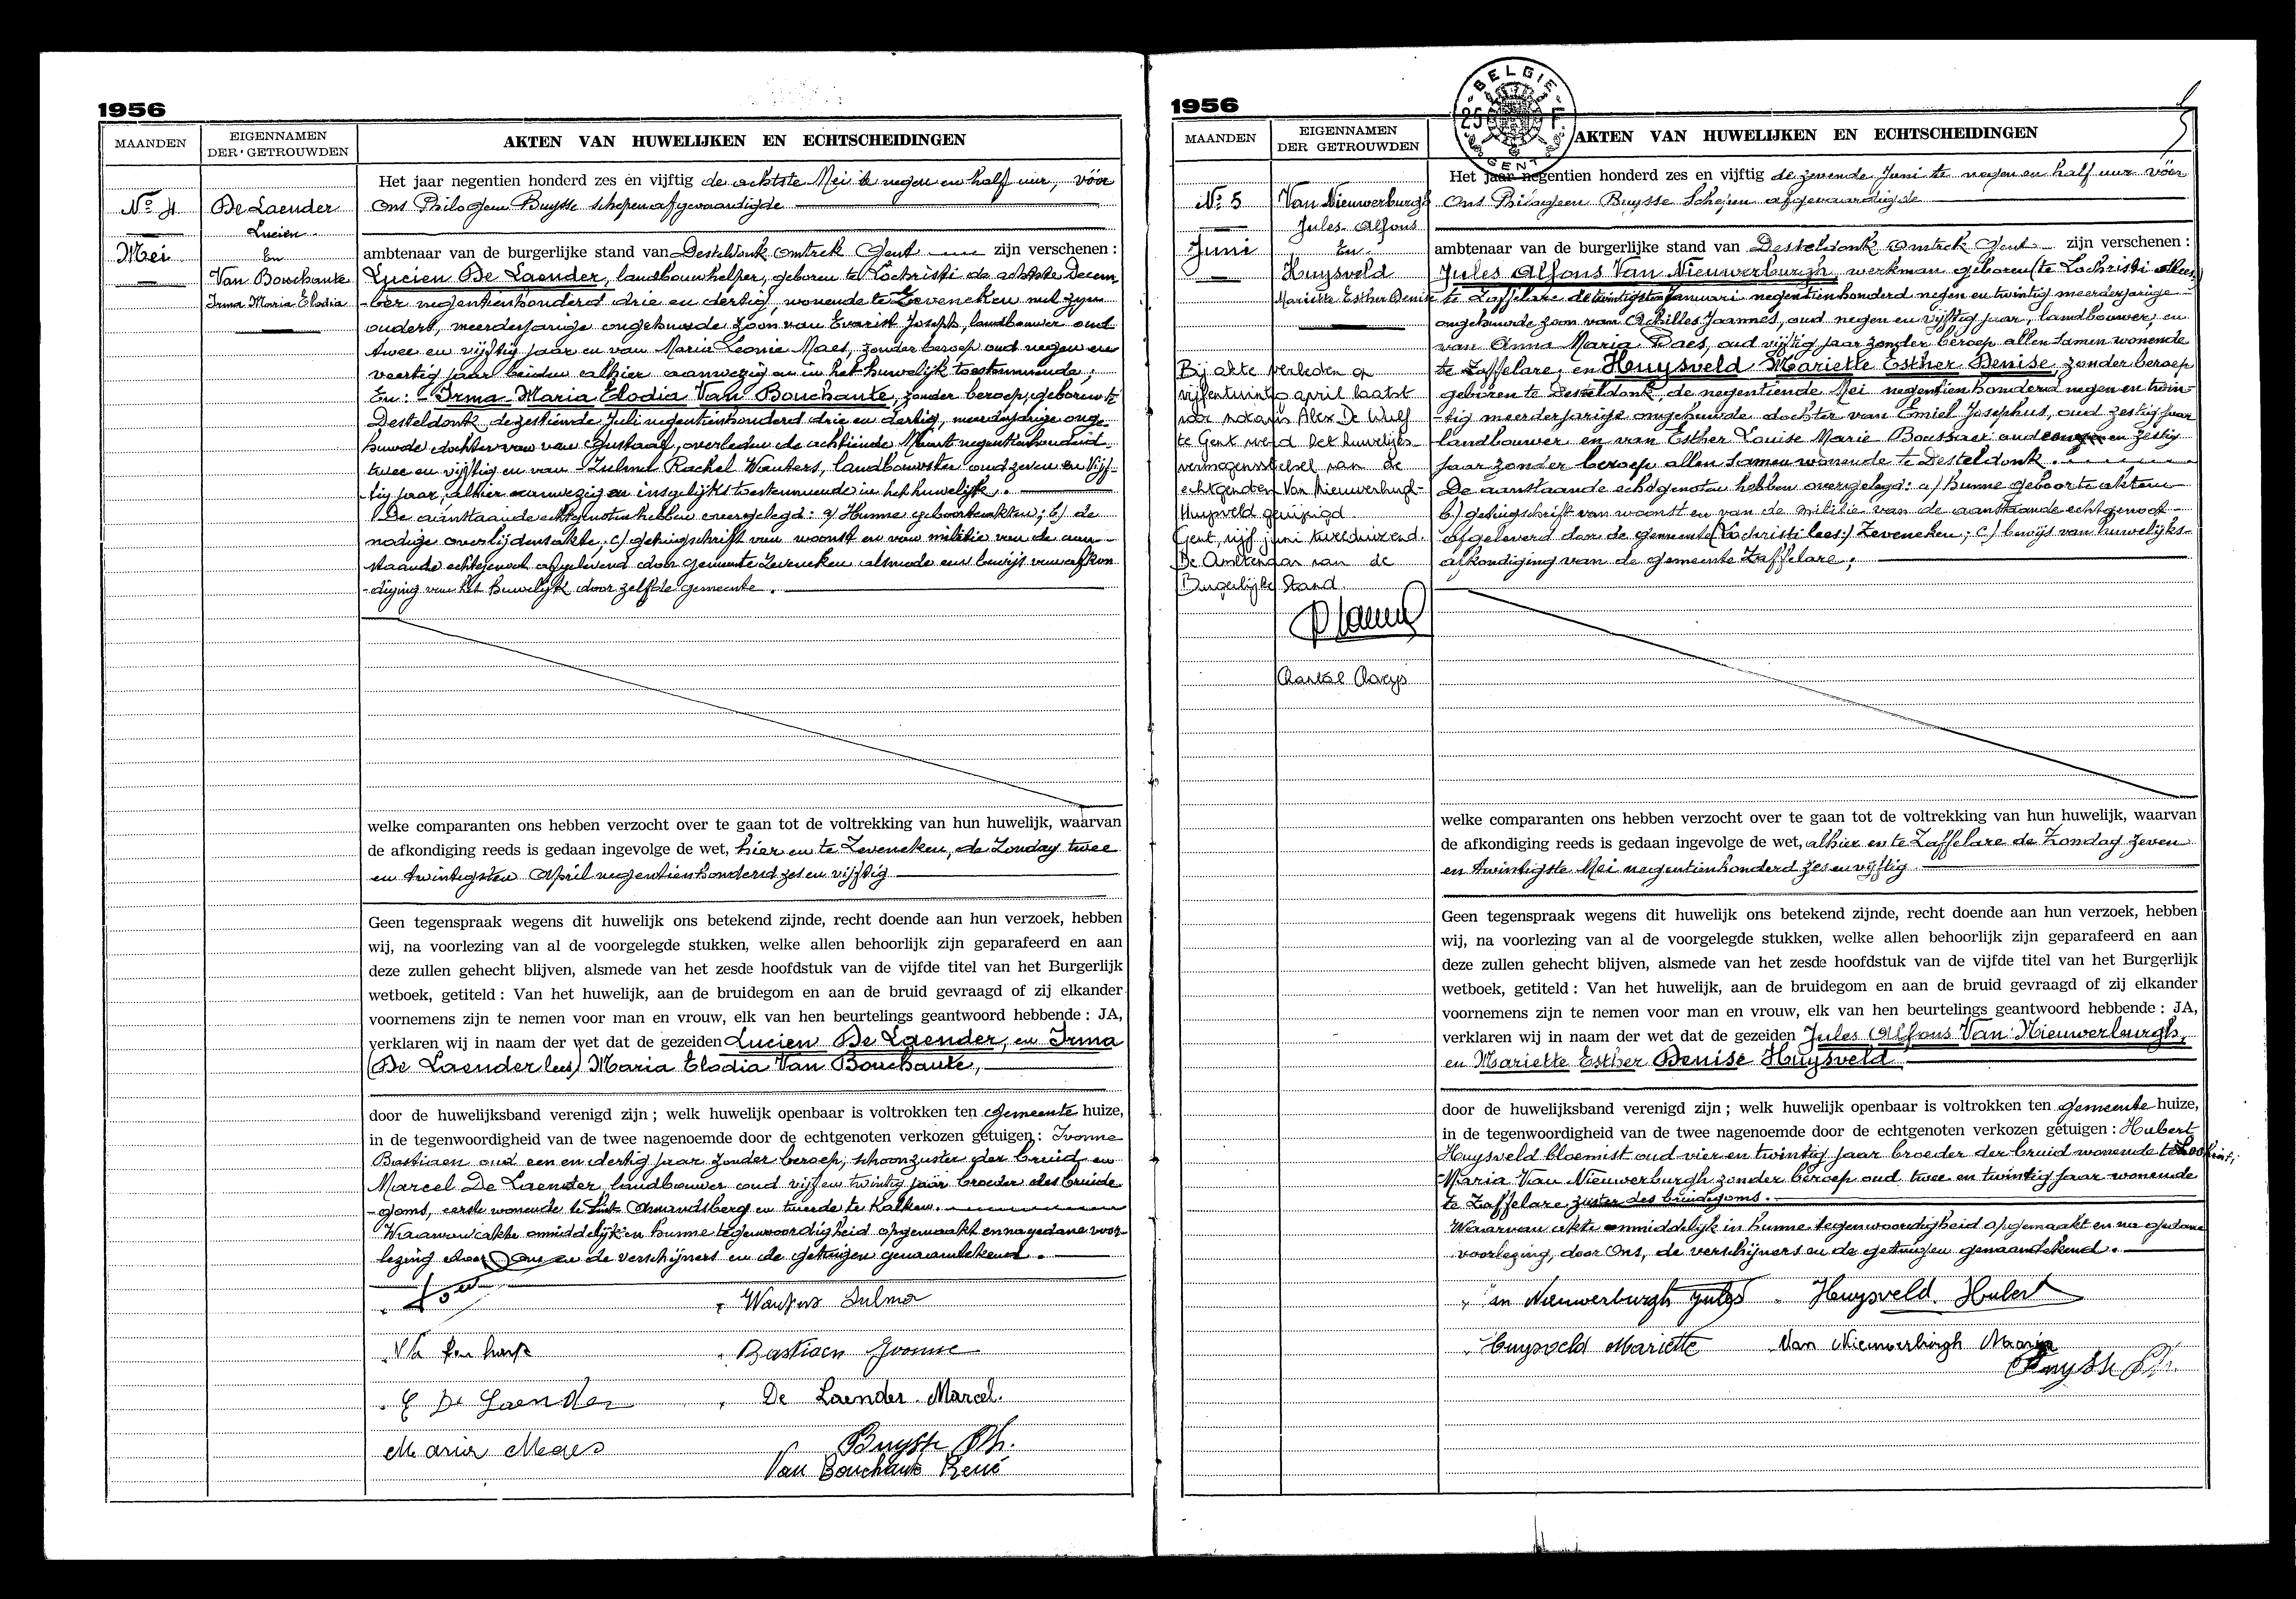 1956
MAANDEN
EIGENNAMEN
DER GETROUWDEN
AKTEN VAN HUWELIJKEN EN ECHTSCHEIDINGEN
No 4
Mei
De Laender
Lucien
En
Van Bouchaute
Irma Maria Elodia
Het jaar negentien honderd zes en vijftig de achtste Mei te negen en half uur, vóór
Ons Philogeen Buysse schepen afgevaardigde
ambtenaar van de burgerlijke stand van Desteldonk omtrek Gent zijn verschenen :
Lucien De Laender, landbouwhelper, geboren te Lochristi de achtste Decem-
ber negentienhonderd drie en dertig, wonende te Zeveneken met zijn
ouders, meerderjarige ongehuwde zoon van Evarist Joseph, landbouwer oud
twee en vijftig jaar en van Maria Leonie Maes, zonder beroep oud negen en
veertig jaar beiden alhier aanwezig en in het huwelijk toestemmende ;
En : - Irma Maria Elodia Van Bouchaute, zonder beroep, geboren te
Desteldonk de zestiende Juli negentienhonderd drie en dertig, meerderjarige onge-
huwde dochter van van Gustaaf, overleden de achtiende Maart negentienhonderd
twee en vijftig en van Zulma Rachel Wauters, landbouwster oud zeven en vijf-
tig jaar, alhier aanwezig en insgelijks toestemmende in het huwelijk.
De aanstaande echtgenoten hebben overgelegd : a) Hunne geboorteakten ; b) de
nodige overlijdensakte, c) getuigschrift van woonst en van militie van de aan-
staande echtgenoot afgeleverd door gemeente Zeveneken alsmede een bewijs van afkon
-diging van het huwelijk door zelfde gemeente.
welke comparanten ons hebben verzocht over te gaan tot de voltrekking van hun huwelijk, waarvan
de afkondiging reeds is gedaan ingevolge de wet, hier en te Zeveneken, de Zondag twee
en twintigsten April negentienhonderd zes en vijftig
Geen tegenspraak wegens dit huwelijk ons betekend zijnde, recht doende aan hun verzoek, hebben
wij, na voorlezing van al de voorgelegde stukken, welke allen behoorlijk zijn geparafeerd en aan
deze zullen gehecht blijven, alsmede van het zesde hoofdstuk van de vijfde titel van het Burgerlijk
wetboek, getiteld : Van het huwelijk, aan de bruidegom en aan de bruid gevraagd of zij elkander
voornemens zijn te nemen voor man en vrouw, elk van hen beurtelings geantwoord hebbende : JA,
verklaren wij in naam der wet dat de gezeiden Lucien De Laender, en Irma
(De Laender lees) Maria Elodia Van Bouchaute,
door de huwelijksband verenigd zijn ; welk huwelijk openbaar is voltrokken ten gemeente huize,
in de tegenwoordigheid van de twee nagenoemde door de echtgenoten verkozen getuigen : Ivonne
Bastiaen oud een en dertig jaar zonder beroep, schoonzuster der bruid en
Marcel De Laender landbouwer oud vijf en twintig jaar broeder des bruide
-goms, eerste wonende te Sint Amandsberg en tweede te Kalken.
Waarvan akte onmiddelijk in hunne tegenwoordigheid opgemaakt en na gedane voor-
lezing door Ons en de verschijners en de getuigen genaamtekend.
Wauters Sulma
Bastiaen Yvonne
E De Laender
De Laender Marcel.
Maria Maes
Buysse Ph.
Van Bouchaute René
1956
BELGIE
GENT
MAANDEN
EIGENNAMEN
DER GETROUWDEN
AKTEN VAN HUWELIJKEN EN ECHTSCHEIDINGEN
No 5
Juni
Van Nieuwerburgh
Jules Alfons
En
Huysveld
Mariette Esther Denise
Bij akte verleden op
vijfentwintig april laatst
voor notaris Alex De Wulf
te Gent werd het huwelijks-
vermogensstelsel van de
echtgenoten Van Nieuwerburgh-
Huysveld gewijzigd.
Gent, vijf juni tweeduizend.
De Ambtenaar van de
Burgerlijke Stand.
Het jaar negentien honderd zes en vijftig de zevende Juni te negen en half uur vóór
Ons Philogeen Buysse Schepen afgevaardigde
ambtenaar van de burgerlijke stand van Desteldonk omtrek Gent zijn verschenen :
Jules Alfons Van Nieuwerburgh, werkman geboren (te Lochristi lees)
te Zaffelare de twintigste Januari negentienhonderd negen en twintig meerderjarige
ongehuwde zoon van Achilles Joannes, oud negen en vijftig jaar, landbouwer, en
van Anna Maria Daes, oud vijftig jaar zonder beroep allen samen wonende
te Zaffelare, en Huysveld Mariette Esther Denise, zonder beroep
geboren te Desteldonk, de negentiende Mei negentienhonderd negen en twin-
tig meerderjarige ongehuwde dochter van Emiel Josephus, oud zestig jaar
landbouwer en van Esther Louise Marie Boussaer oud en zestig
jaar zonder beroep allen samen wonende te Desteldonk.
De aanstaande echtgenoten hebben overgelegd : a) hunne geboorteakten
b) getuigschrift van woonst en van de militie van de aanstaande echtgenoot
afgeleverd door de gemeente (Lochristi lees :) Zeveneken ; c) bewijs van huwelijks-
afkondiging van de gemeente Zaffelare ;
welke comparanten ons hebben verzocht over te gaan tot de voltrekking van hun huwelijk, waarvan
de afkondiging reeds is gedaan ingevolge de wet, alhier en te Zaffelare de Zondag zeven
en twintigste Mei negentienhonderd zes en vijftig
Geen tegenspraak wegens dit huwelijk ons betekend zijnde, recht doende aan hun verzoek, hebben
wij, na voorlezing van al de voorgelegde stukken, welke allen behoorlijk zijn geparafeerd en aan
deze zullen gehecht blijven, alsmede van het zesde hoofdstuk van de vijfde titel van het Burgerlijk
wetboek, getiteld : Van het huwelijk, aan de bruidegom en aan de bruid gevraagd of zij elkander
voornemens zijn te nemen voor man en vrouw, elk van hen beurtelings geantwoord hebbende : JA,
verklaren wij in naam der wet dat de gezeiden Jules Alfons Van Nieuwerburgh,
en Mariette Esther Denise Huysveld
door de huwelijksband verenigd zijn ; welk huwelijk openbaar is voltrokken ten gemeente huize,
in de tegenwoordigheid van de twee nagenoemde door de echtgenoten verkozen getuigen : Hubert
Huysveld bloemist oud vier en twintig jaar broeder der bruid wonende te
Maria Van Nieuwerburgh zonder beroep oud twee en twintig jaar wonende
te Zaffelare zuster des bruidegoms.
Waarvan akte onmiddelijk in hunne tegenwoordigheid opgemaakt en na gedane
voorlezing, door Ons, de verschijners en de getuigen genaamtekend.
Van Nieuwerburgh Jules
Huysveld Hubert
Huysveld Mariette
Van Nieuwerburgh Maria
Buysse Ph.